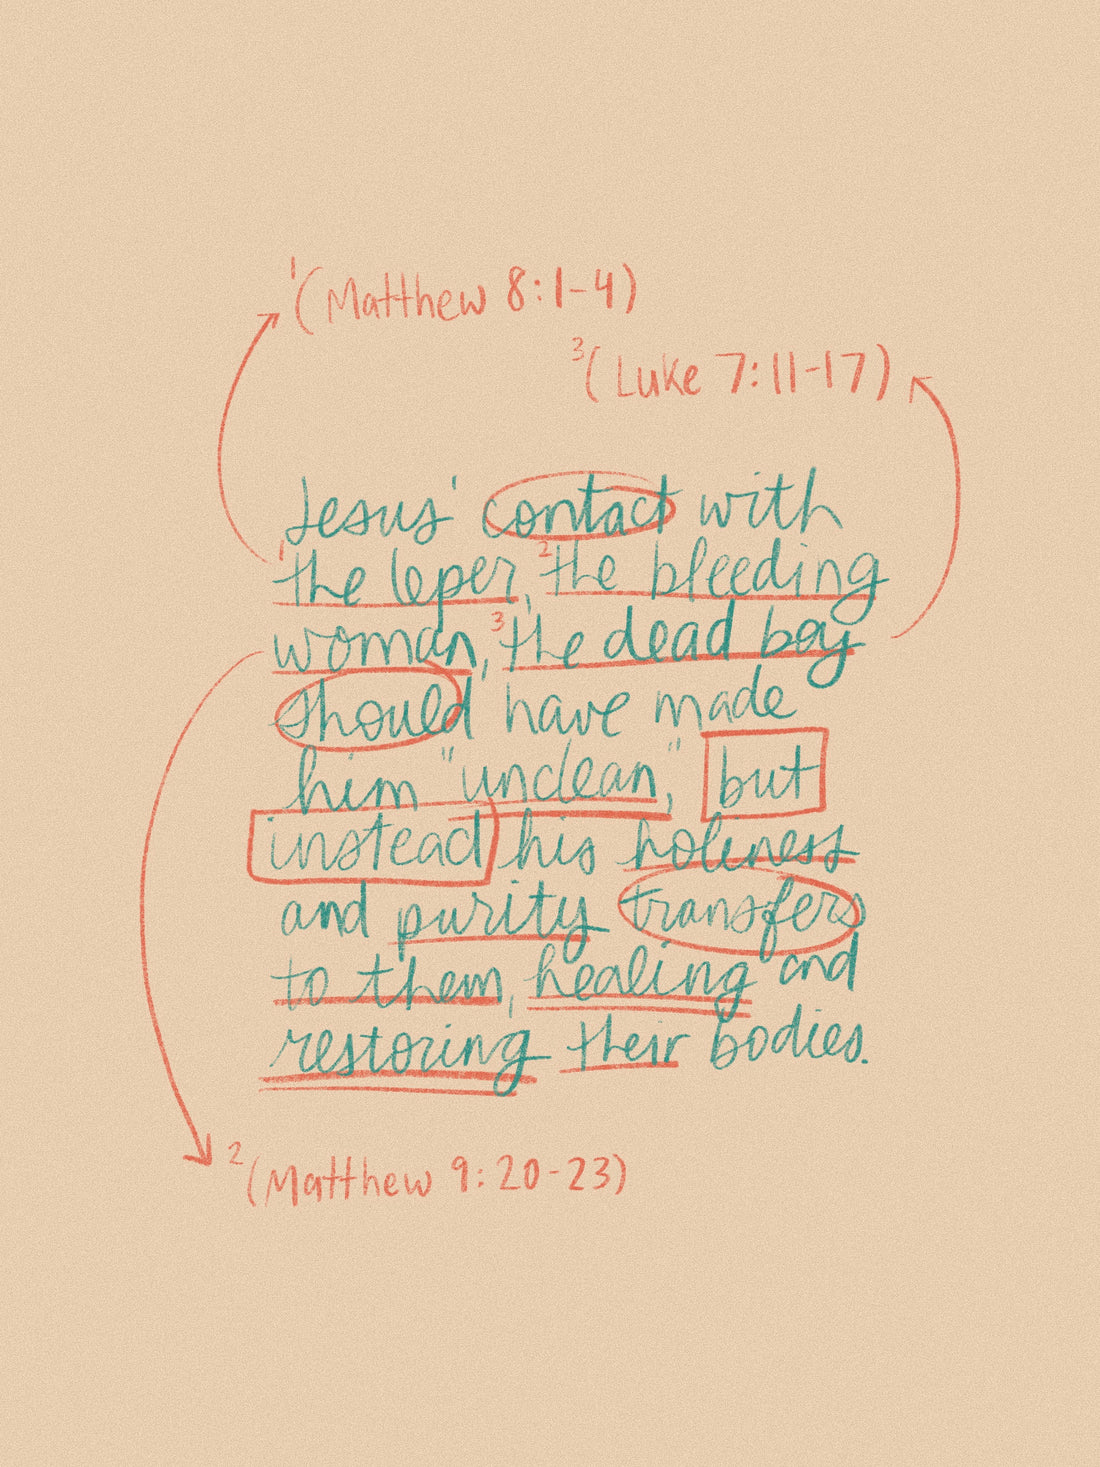 1(Matthew 8:1-4)
3(Luke 7:11-17)
Jesus' contact with
1the leper, 2the bleeding
woman, 3the dead boy
should have made
him "unclean," but
instead his holiness
and purity transfers
to them, healing and
restoring their bodies.
2(Matthew 9:20-23)